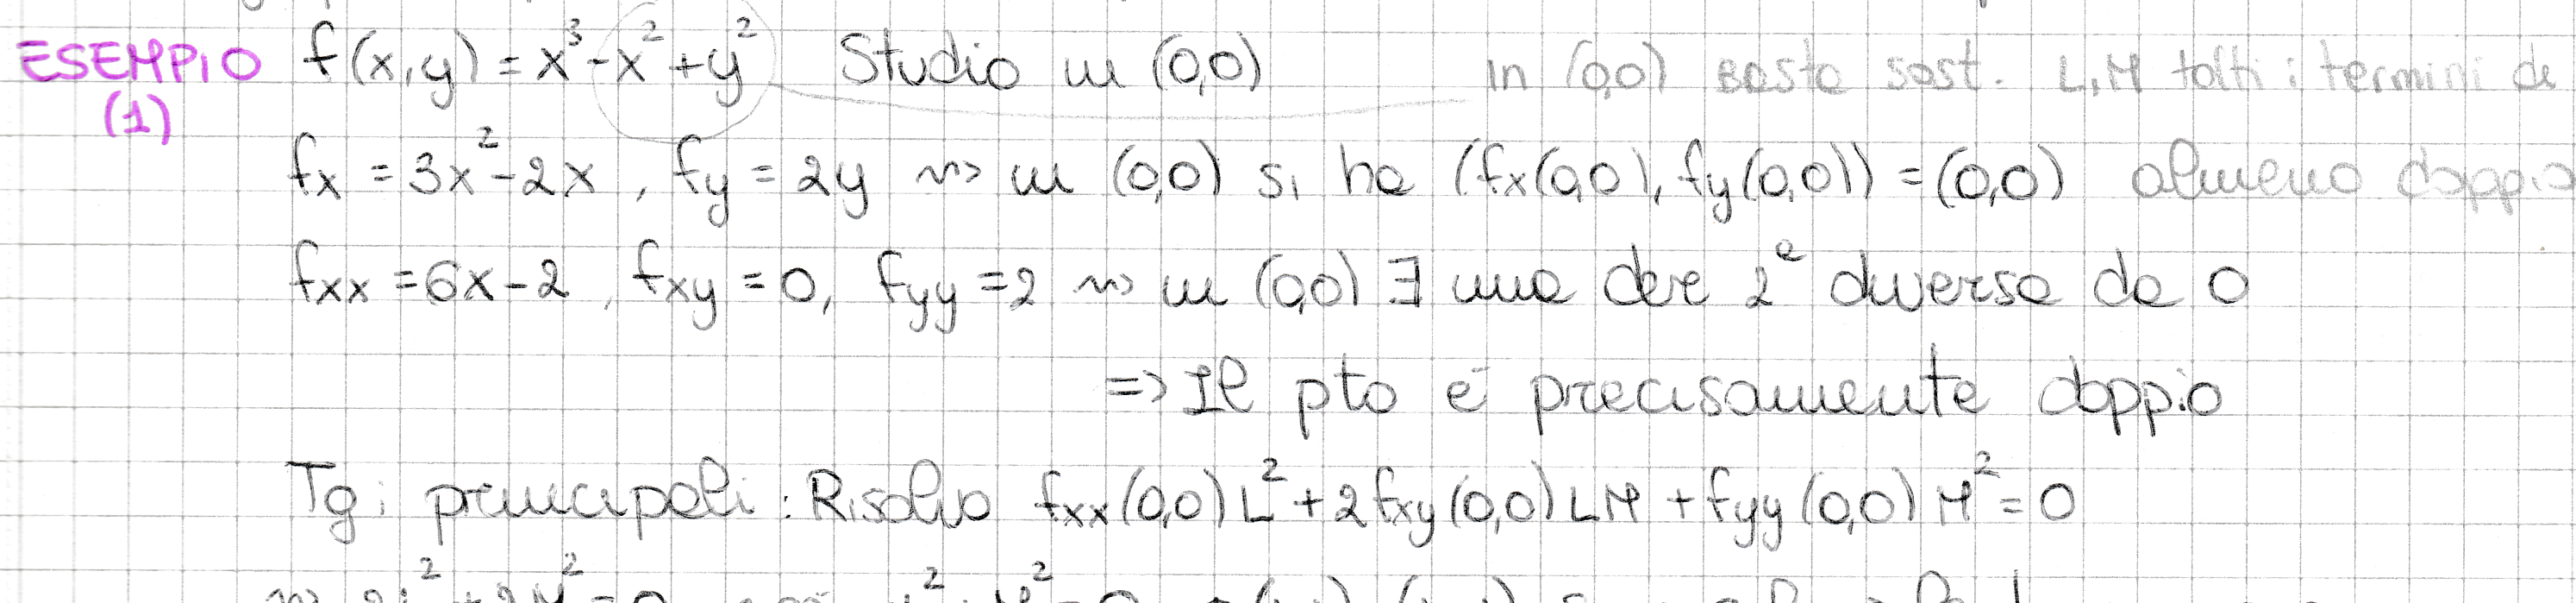 ESEMPIO f(x,y) = x³-x²+y² Studio in (0,0) in (0,0) basta sost. L,M tolti i termini de
(1)
fx = 3x²-2x , fy = 2y ~> in (0,0) si ha (fx(0,0), fy(0,0)) = (0,0) almeno doppio
fxx = 6x-2 , fxy = 0, fyy = 2 ~> in (0,0) ∃ una der 2ª diversa da 0
=> Il pto è precisamente doppio
Tg i principali : Risolvo fxx(0,0)L² + 2fxy(0,0)LM + fyy(0,0)M² = 0